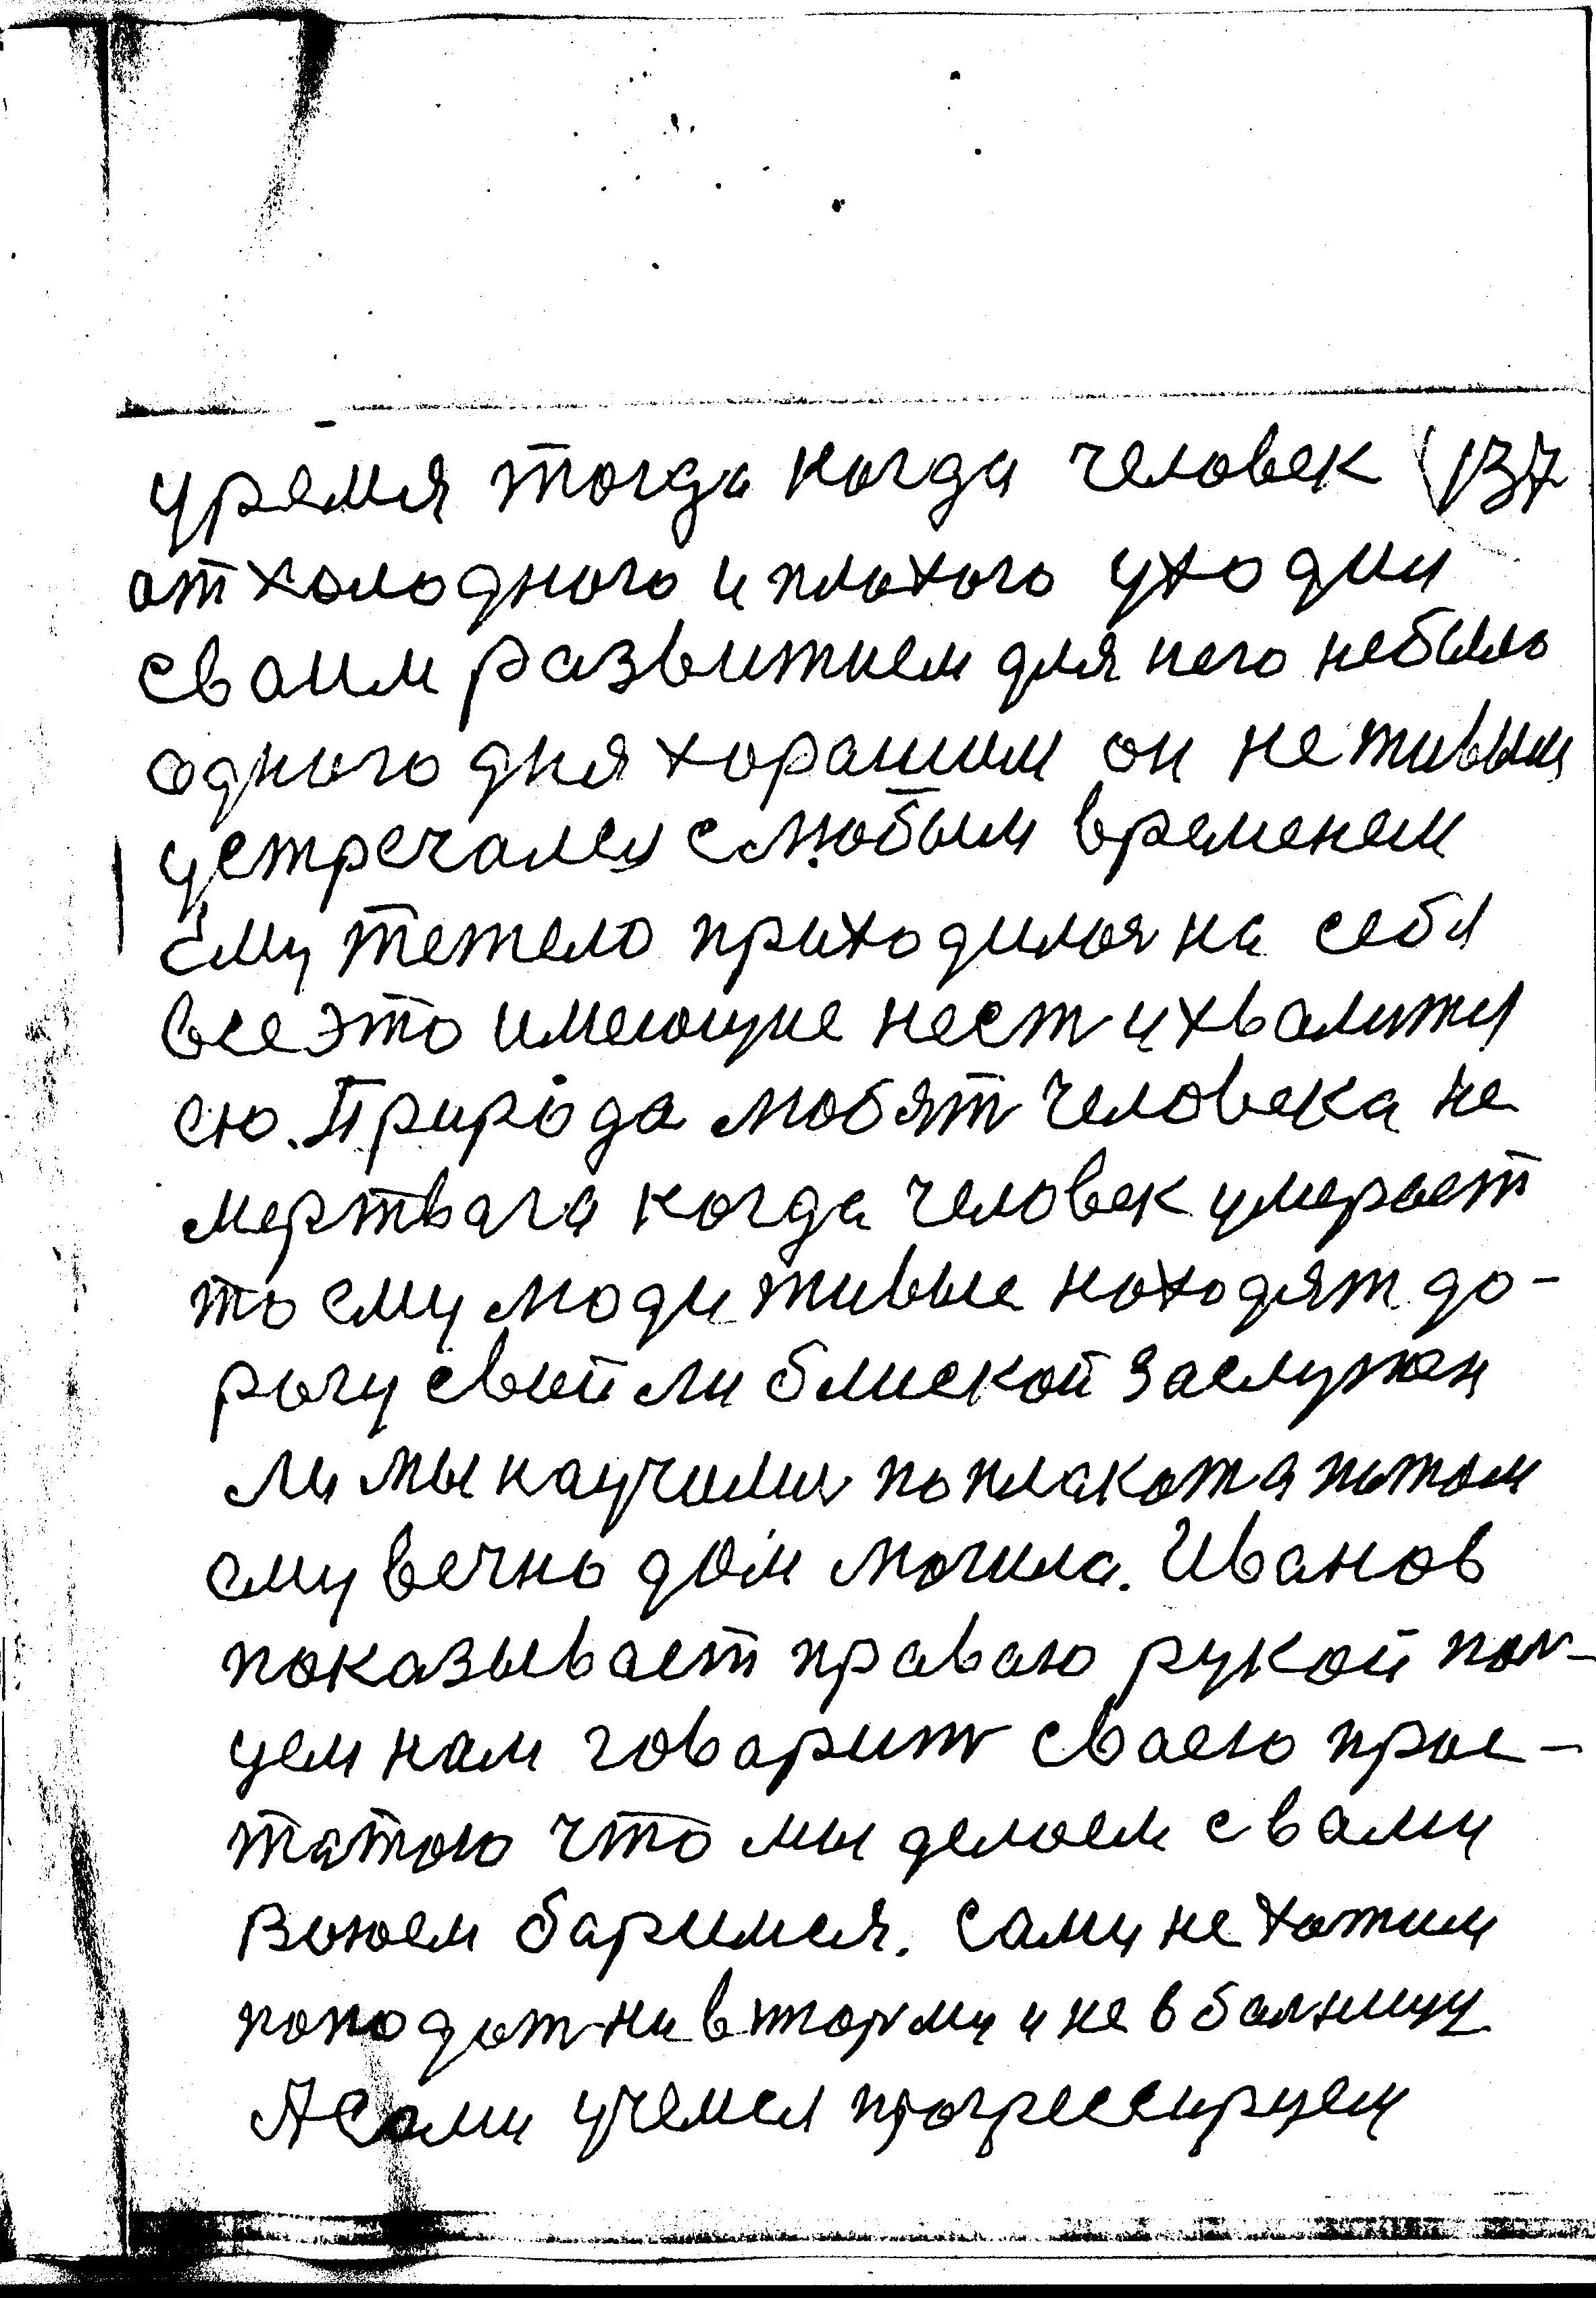 уремя тогда когда человек (137
от холодного и плохого уходил
сваим развитием для него небыло
одного дня хорашим он не живым
устречался с любым временем
ему тежело приходилоя на себя
все это имеющие нест и хвалити
сю. Природа любят человека не
мертвага когда человек умерает
то ему люди живые находят до-
рогу свои ли блиской заслужен
ли мы научилис поплакат а потом
ему вечно дом могила. Иванов
показывает праваю рукой пол-
цем нам говарит сваею прос-
татою что мы делоем с вами
воюем баримся. Сами не хотим
попадат ни в тюрму и не в балницу
А Сами учемся прогрессируем